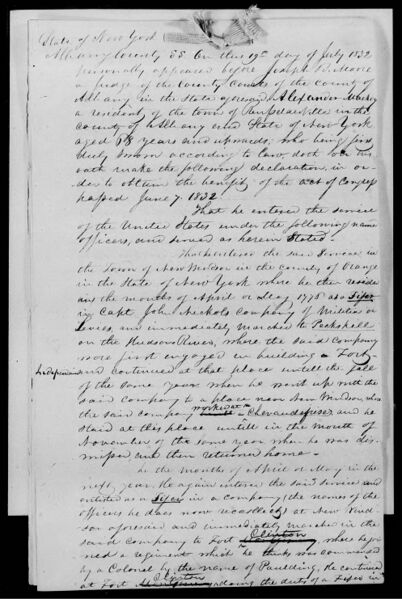 State of New York
Albany County SS On this 19th day of July 1832
personally appeared before Joseph
a judge of the County Courts of the County of
Albany in the State aforesaid Alexander
a resident of the town of in the
County of Albany and State of New York
aged 78 years and upwards, who being first
duly sworn according to law, doth on his
oath make the following declaration, in or-
der to obtain the benefit of the act of Congress
passed June 7. 1832.
That he entered the service
of the United States under the following name
officers, and served as herein stated.
That he entered the said service, in
the Town of New Windsor in the County of Orange
in the State of New York where he then resided
in the months of April or May 1775 as a fifer
in Capt John Nichols Company of Militia or
Levies, and immediately marched to Peekskill
on the Hudson River, where the said Company
were first engaged in building a Fort
Independence and continued at that place untill the fall
of the same year when he went up with the
said company to a place near New Windsor, &
the said company worked at a Chevaudefrise and he
staid at this place untill in the month of
November of the same year when he was dis-
missed and then returned home.
In the months of April or May in the
next year, he again entered the said service and
enlisted as a fifer in a company (the names of the
officers he does now recollect) at New Wind-
sor aforesaid and immediately marched in the
said company to Fort Clinton where he joi-
ned a regiment which he thinks was commanded
by a Colonel by the name of Paulding, he continued
at Fort Clinton doing the duty of a fifer in